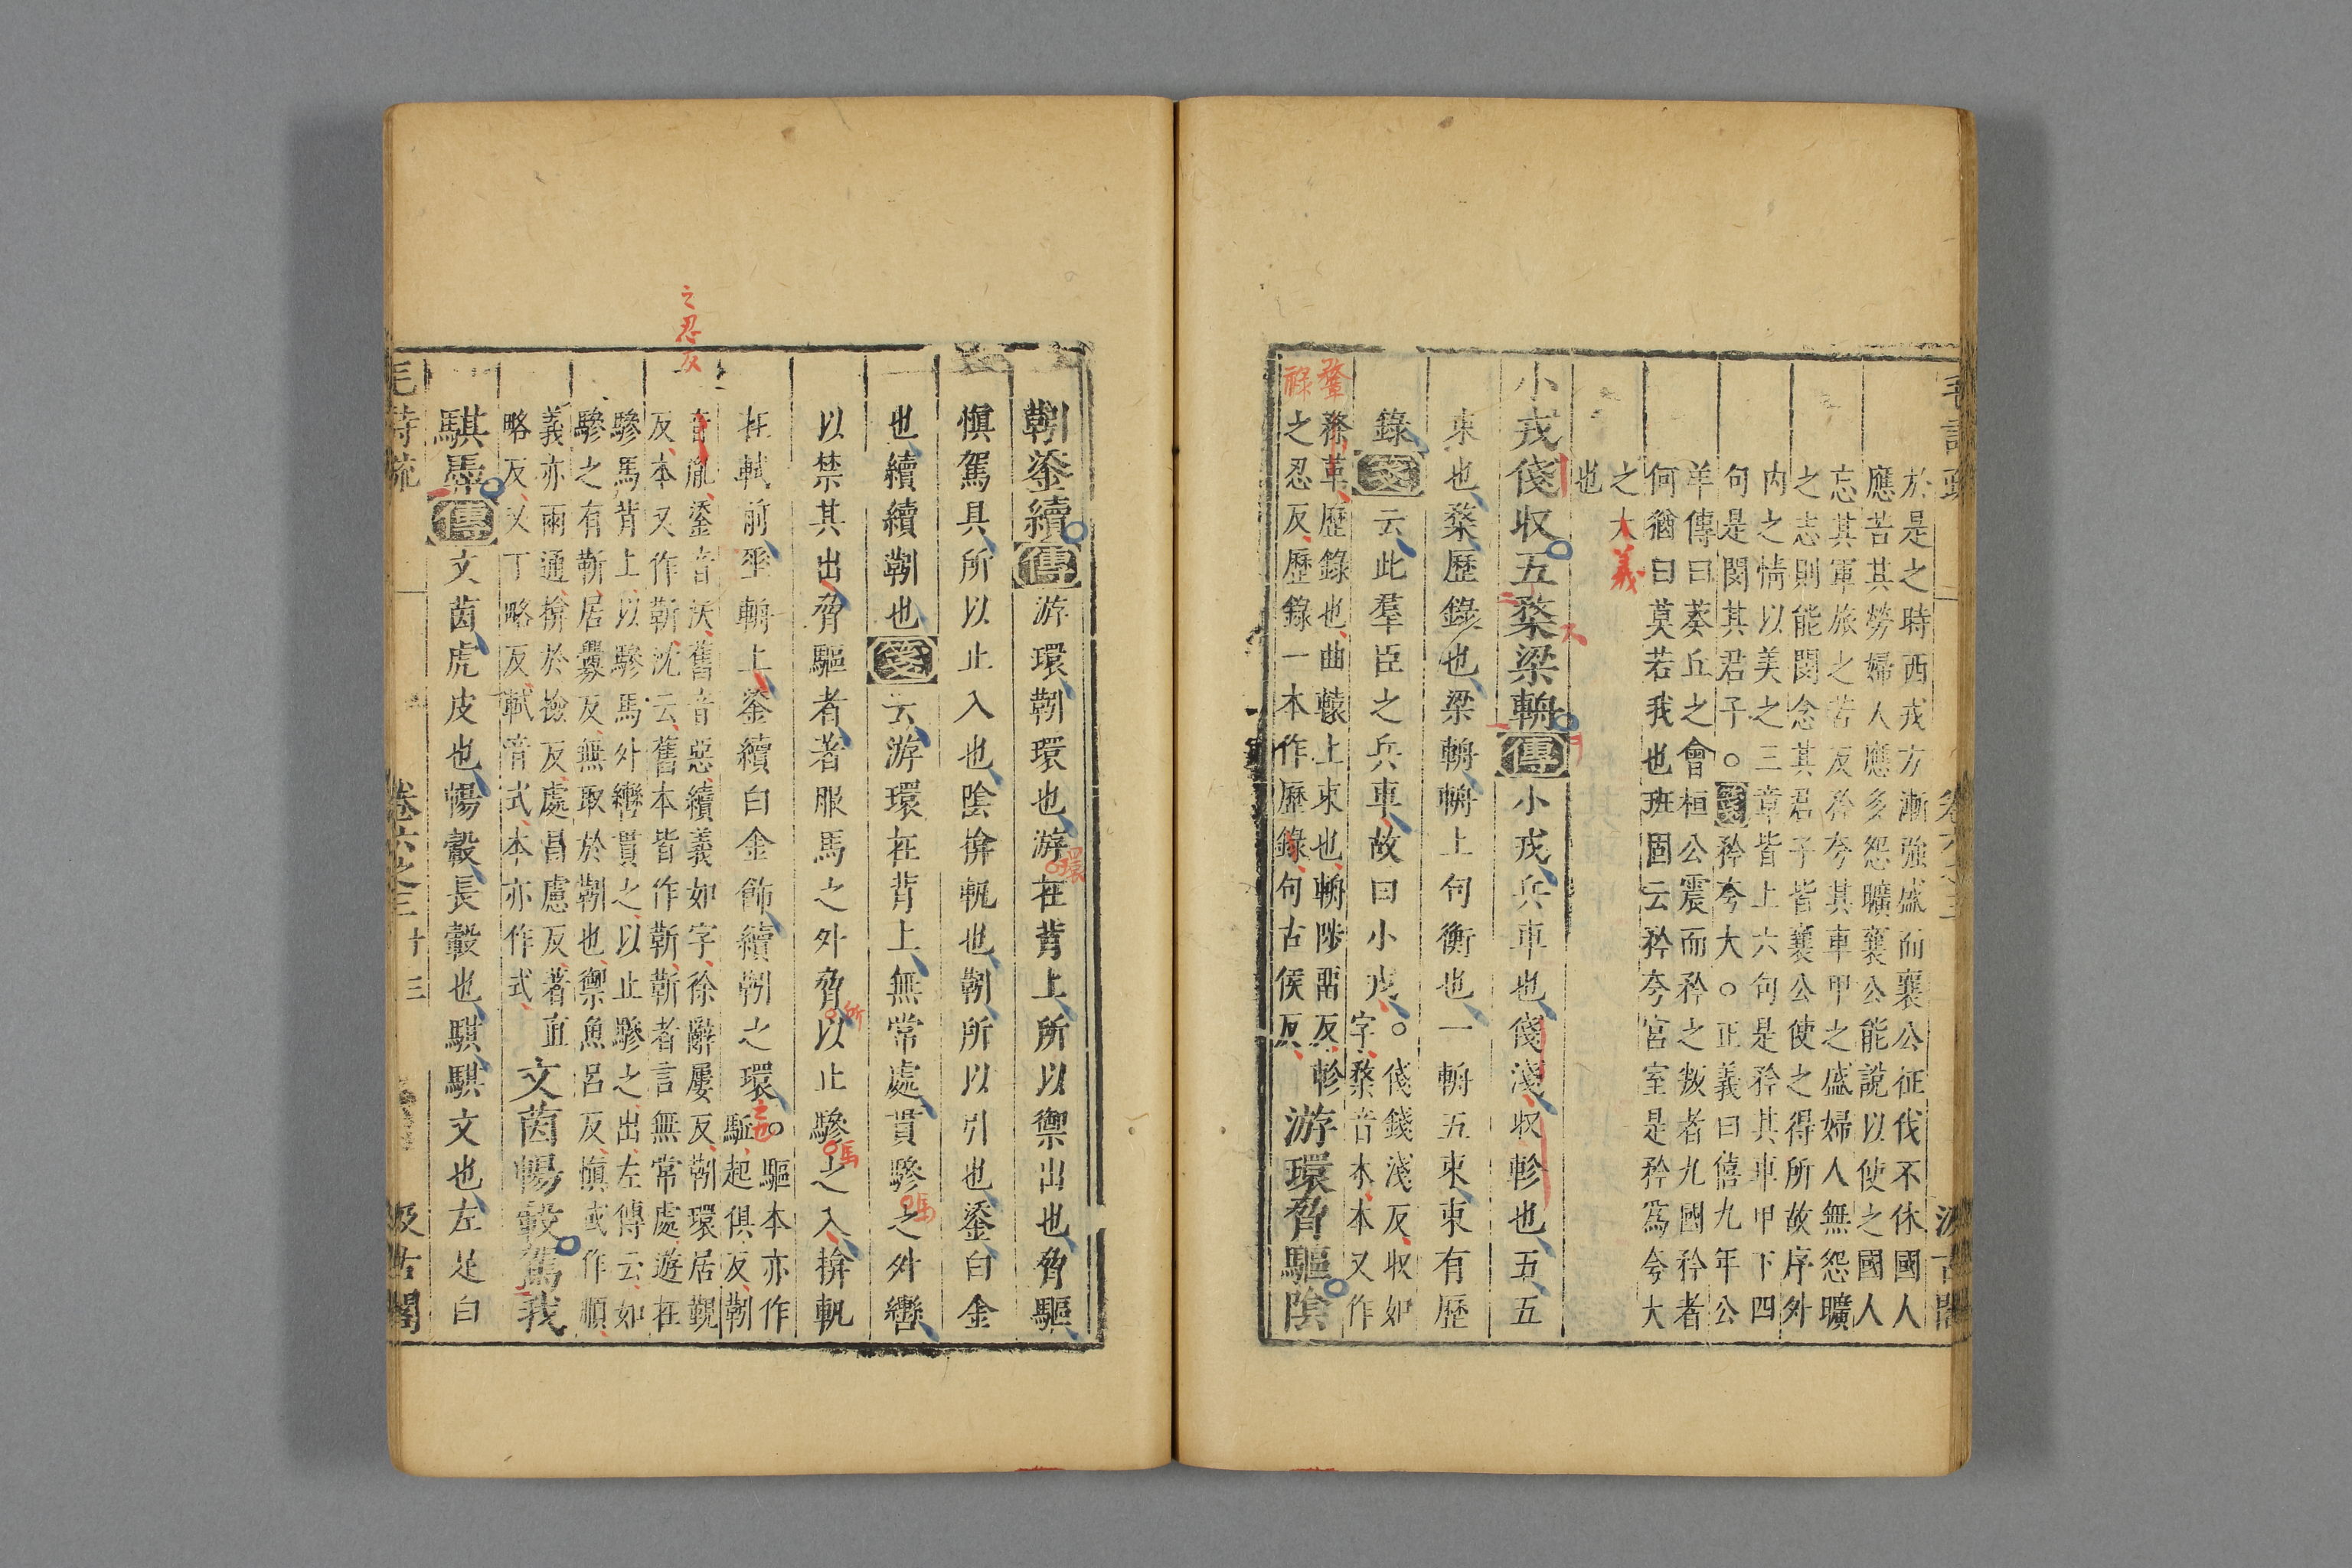 毛詩疏 卷六之三 汲古閣
於是之時西戎方漸強盛而襄公征伐不休國人
應苦其勞婦人應多怨曠襄公能說以使之國人
忘其軍旅之苦反矜夸其車甲之盛婦人無怨曠
之志則能閔念其君子皆襄公使之得所故序外
内之情以美之三章皆上六句是矜其車甲下四
句是閔其君子○箋矜夸大○正義曰僖九年公
羊傳曰葵丘之會桓公震而矜之叛者九國矜者
何猶曰莫若我也班固云矜夸宮室是矜爲夸大
之大義
也
小戎俴収五楘梁輈傳小戎兵車也俴淺収軫也五五
束也楘歷錄也梁輈輈上句衡也一輈五束束有歷
錄箋云此羣臣之兵車故曰小戎○俴錢淺反収如
字楘音木本又作
鞪
務革歷錄也曲轅上束也輈陟畱反軫
祿
之忍反歷錄一本作歷錄句古侯反
游環脅驅陰
靷鋈續傳游環靷環也游環在背上所以禦出也脅驅
慎駕具所以止入也陰揜軓也靷所以引也鋈白金
也續續靷也箋云游環在背上無常處貫驂馬之外轡
以禁其出脅驅者著服馬之外脅所以止驂馬之入揜軓
在軾前垂輈上鋈續白金飾續靷之環
之也
○驅本亦作
駈起俱反靷
之忍反
音胤鋈音沃舊音惡續義如字徐辭屢反靷環居覲
反本又作靳沈云舊本皆作靳靳者言無常處遊在
驂馬背上以驂馬外轡貫之以止驂之出左傳云如
驂之有靳居釁反無取於靷也禦魚呂反慎或作順
義亦兩通揜於檢反處昌慮反著直
略反又丁略反軾音式本亦作式
文茵暢轂駕我
騏馵傳文茵虎皮也暢轂長轂也騏騏文也左足白
毛詩疏 卷六之三 十三 汲古閣